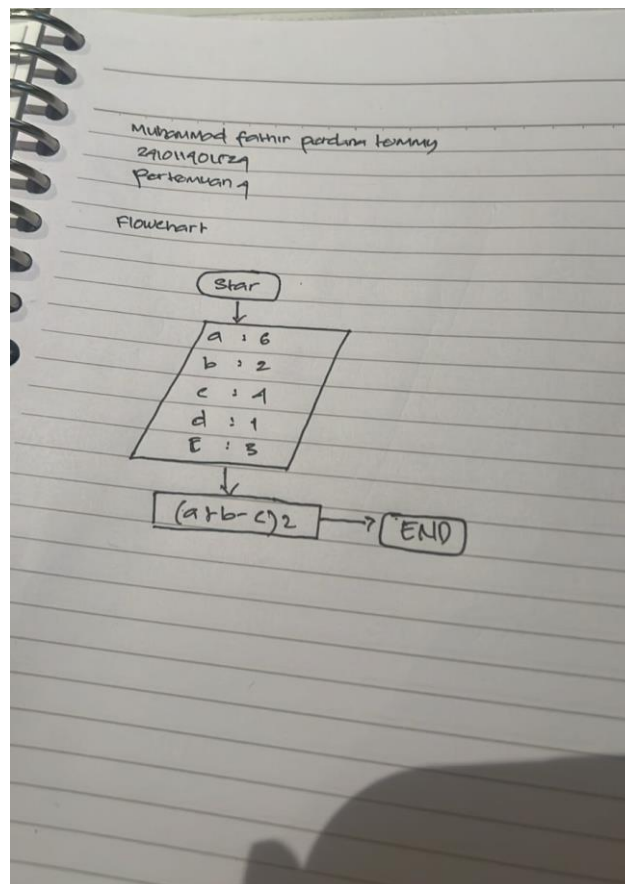 Muhammad fathir perdana tommy
Pertemuan 4
Flowchart
Star
a : 6
b : 2
c : 4
d : 1
E : 3
(a+b-c)2
END